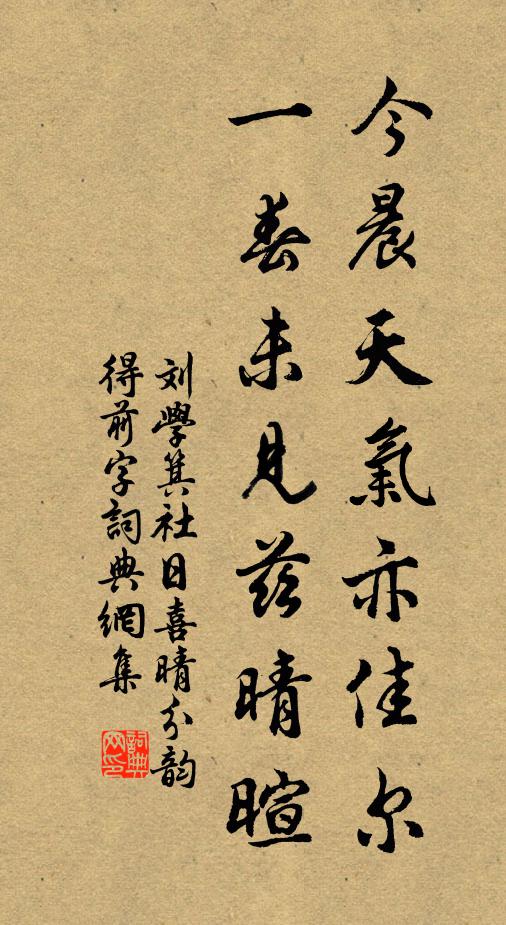 今晨天氣亦佳尔
一春未見兹晴暄
刘學箕社日喜晴分韵
得前字詞典網集
詞典网印